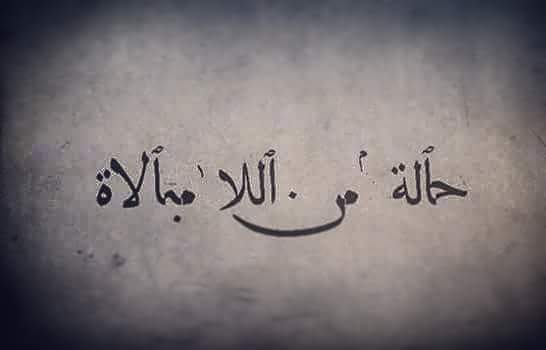 حالة من اللا مبالاة